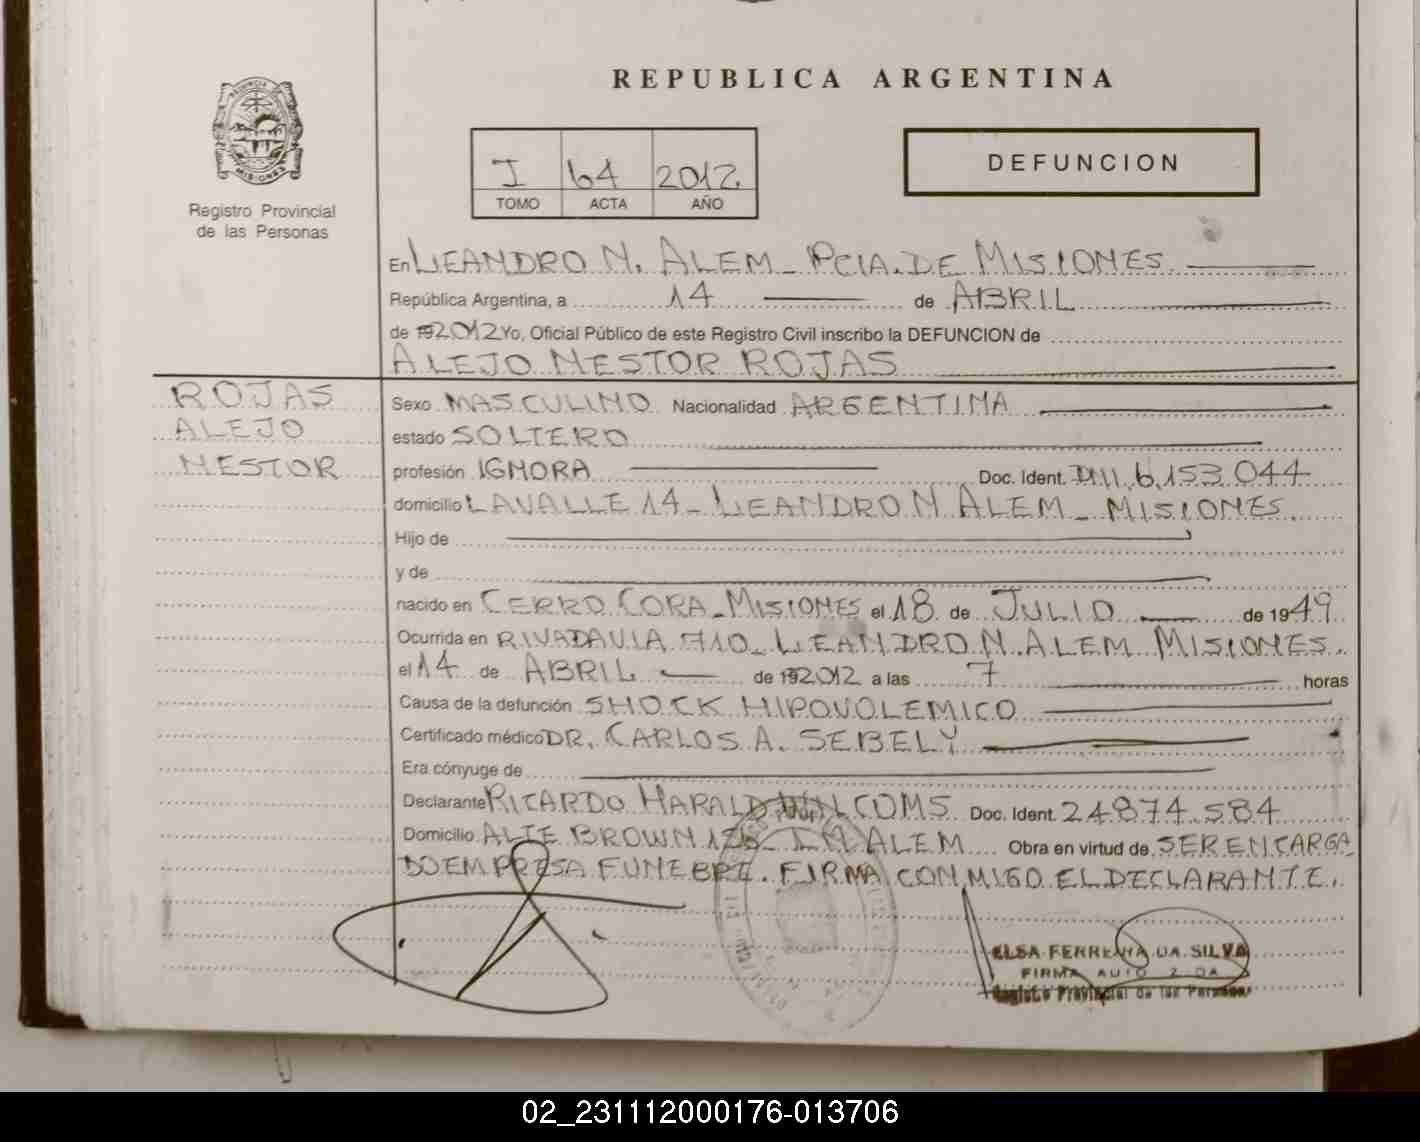 REPUBLICA ARGENTINA
I 64 2012
TOMO ACTA AÑO
DEFUNCION
PROVINCIA DE
MISIONES
Registro Provincial
de las Personas
En LEANDRO N. ALEM - PCIA. DE MISIONES
República Argentina, a 14 de ABRIL
de 192012 Yo, Oficial Público de este Registro Civil inscribo la DEFUNCION de
ALEJO NESTOR ROJAS
ROJAS
ALEJO
NESTOR
Sexo MASCULINO Nacionalidad ARGENTINA
estado SOLTERO
profesión IGNORA Doc. Ident. DNI. 6.153.044
domicilio LAVALLE 14 - LEANDRO N ALEM - MISIONES.
Hijo de
y de
nacido en CERRO CORA - MISIONES el 18 de JULIO de 1949
Ocurrida en RIVADAVIA 710 - LEANDRO N. ALEM MISIONES.
el 14 de ABRIL de 192012 a las 7 horas
Causa de la defunción SHOCK HIPOVOLEMICO
Certificado médico DR. CARLOS A. SEBELY
Era cónyuge de
Declarante RICARDO HARALD Doc. Ident. 24.874.584
Domicilio ALTE BROWN ALEM Obra en virtud de SER ENCARGA
DO EMPRESA FUNEBRE. FIRMA CONMIGO EL DECLARANTE.
ELSA FERREYRA DA SILVA
FIRMA AUTO
Registro Provincial de las Personas
02_231112000176-013706